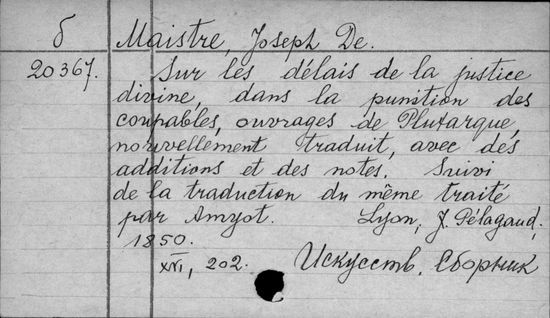 б Maistre, Joseph De.
20367. Sur les délais de la justice
divine, dans la punition des
coupables, ouvrages de Plutarque,
nouvellement traduit, avec des
additions et des notes. Suivi
de la traduction du même traité
par Amyot. Lyon, J. Pélagaud,
1850.
XVI, 202. Искусств. Сборник